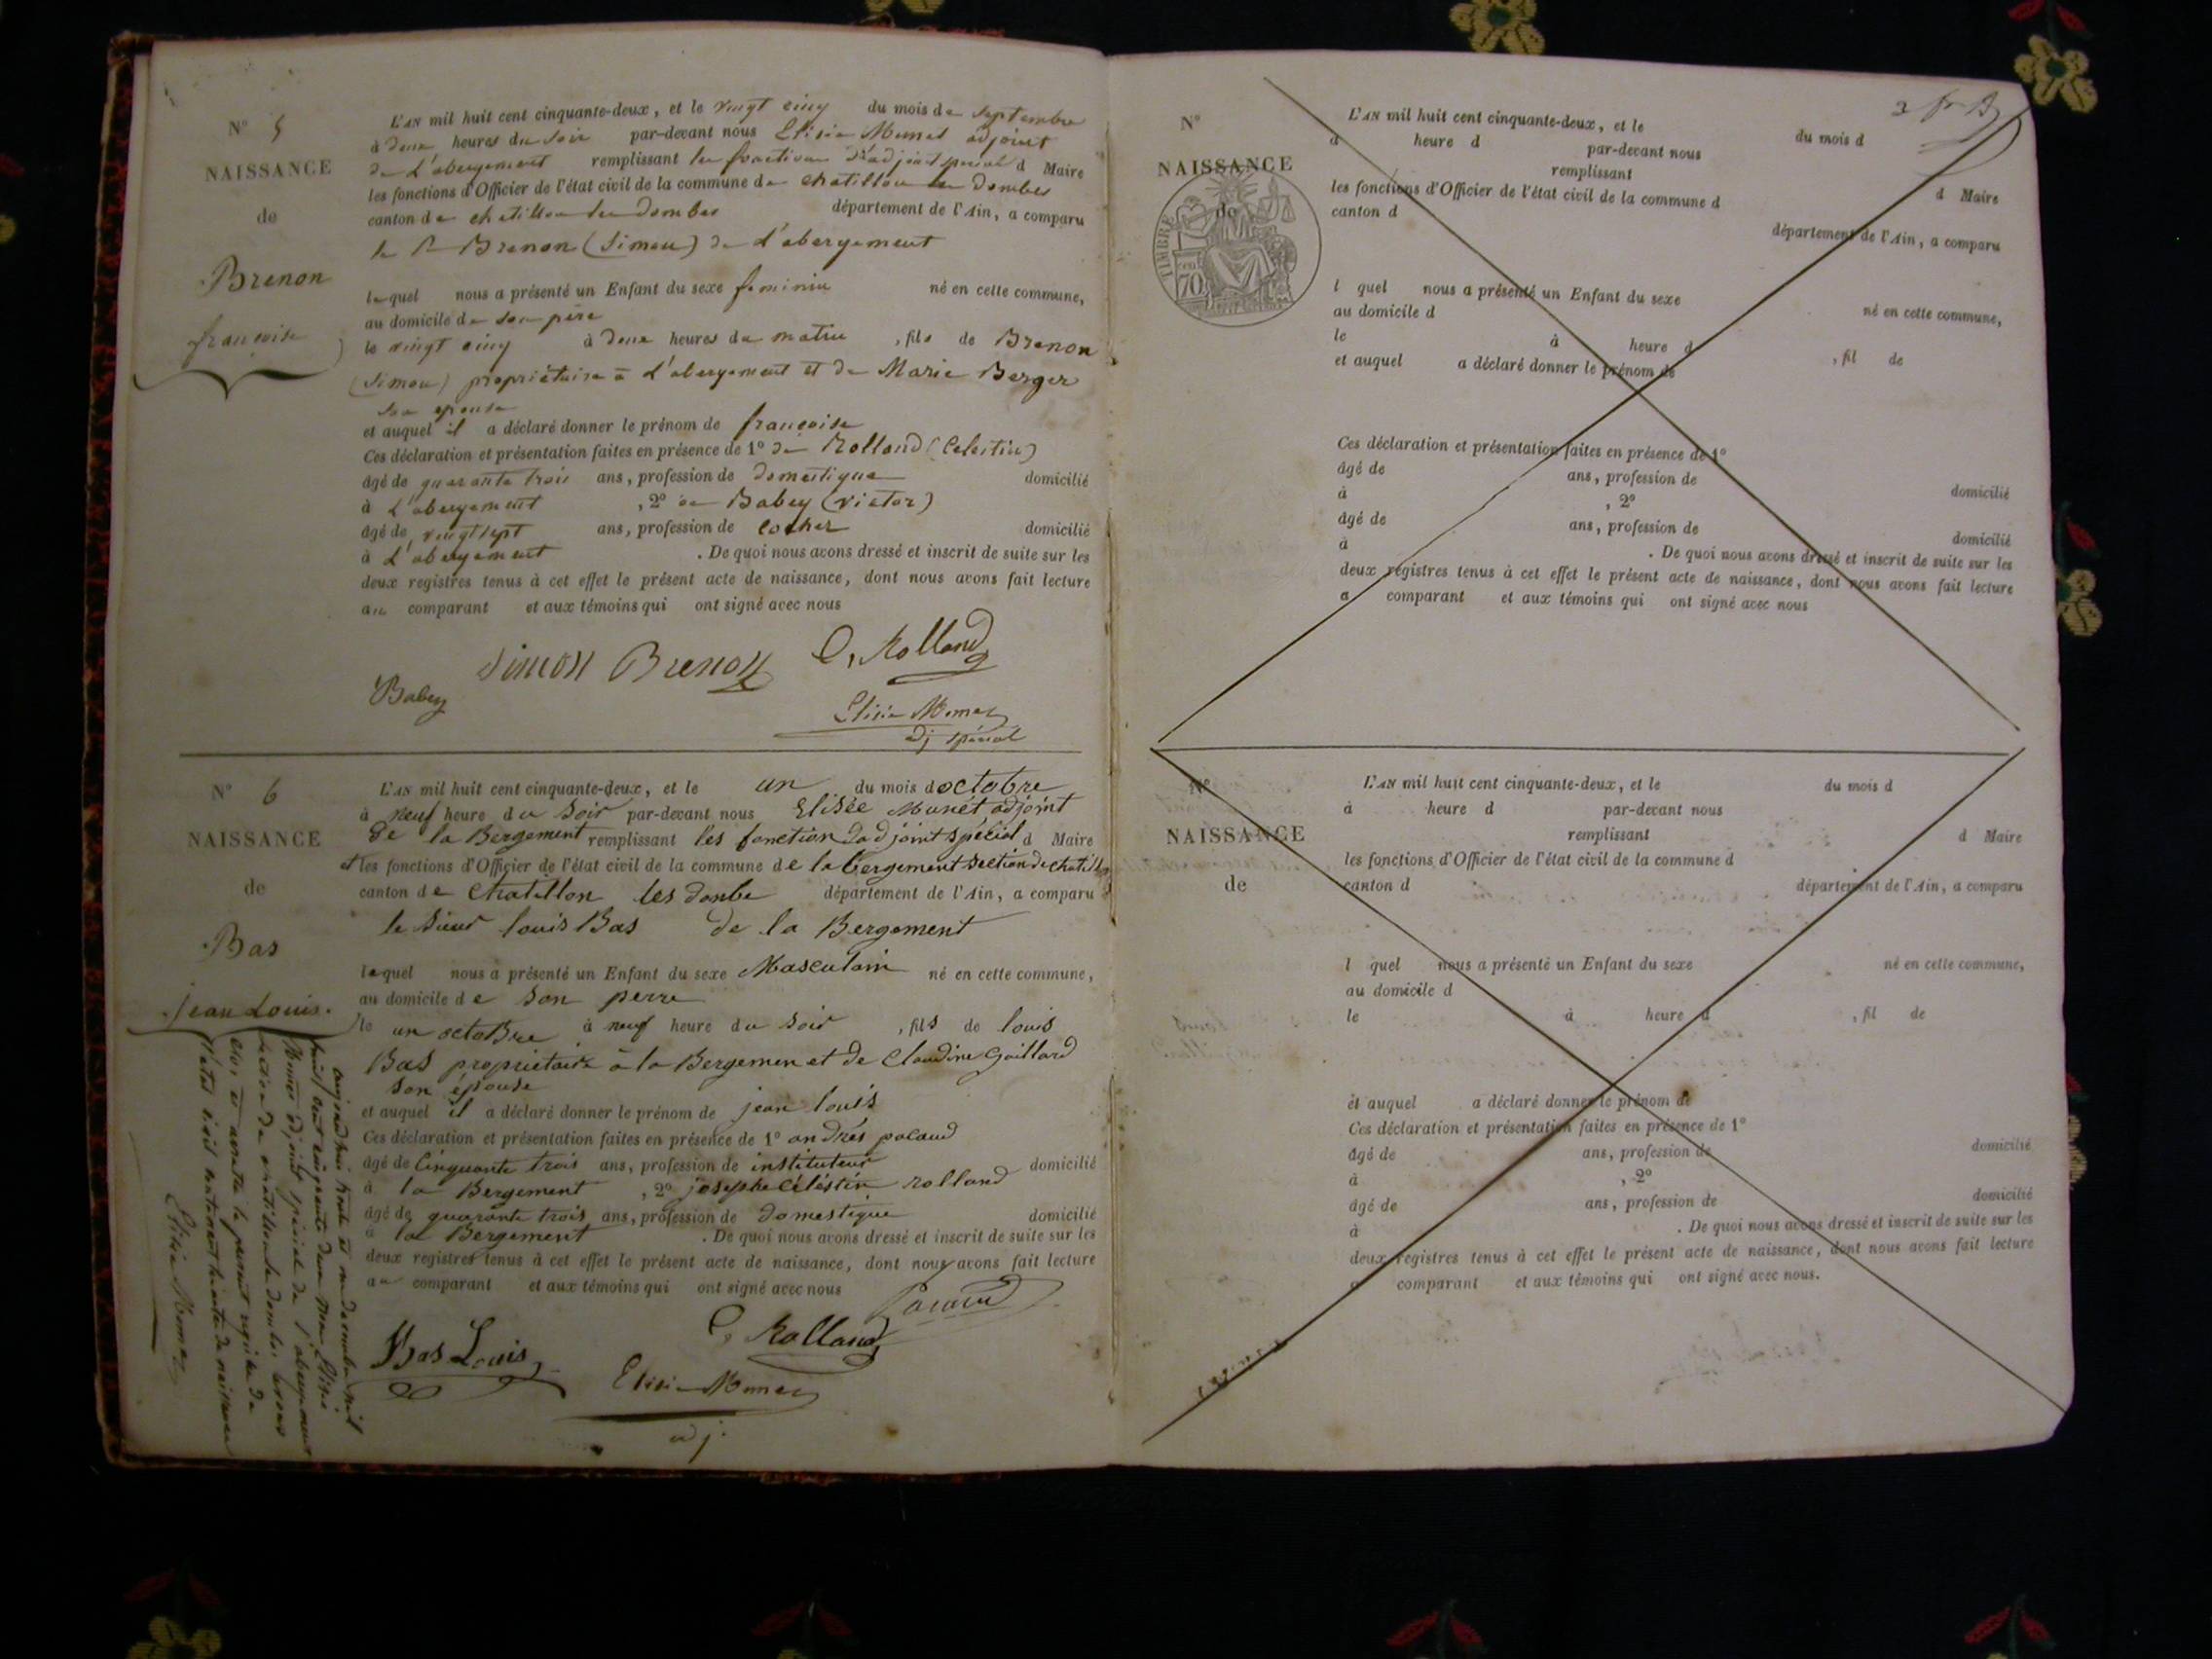 N° 5
NAISSANCE
de
Brenon
françoise
L'AN mil huit cent cinquante-deux, et le vingt cinq du mois de septembre
à deux heures du soir par-devant nous Elisée Munet adjoint
de L'abergement remplissant les fonctions d'adjoint spécial d Maire
les fonctions d'Officier de l'état civil de la commune de chatillon les dombes
canton de chatillon les dombes département de l'Ain, a comparu
le Sr Brenon (Simon) de L'abergement
lequel nous a présenté un Enfant du sexe feminin né en cette commune,
au domicile de son père
le vingt cinq à deux heures du matin, fils de Brenon
(Simon) propriétaire à L'abergement et de Marie Berger
son epouse
et auquel il a déclaré donner le prénom de françoise
Ces déclaration et présentation faites en présence de 1° de Rolland (Celestin)
âgé de quarante trois ans, profession de domestique domicilié
à L'abergement, 2° de Babey (victor)
âgé de vingt sept ans, profession de cocher domicilié
à L'abergement. De quoi nous avons dressé et inscrit de suite sur les
deux registres tenus à cet effet le présent acte de naissance, dont nous avons fait lecture
au comparant et aux témoins qui ont signé avec nous
Simon Brenon C. Rolland
Babey
Elisée Munet
adj spécial
N° 6
NAISSANCE
de
Bas
jean Louis.
L'AN mil huit cent cinquante-deux, et le un du mois d octobre
à neuf heure du soir par-devant nous Elisée Munet, adjoint
de la Bergement remplissant les fonction dadjoint spécial d Maire
et les fonctions d'Officier de l'état civil de la commune de la bergement section de chatillon
canton de chatillon les donbe département de l'Ain, a comparu
le sieur louis Bas de la Bergement
lequel nous a présenté un Enfant du sexe Masculain né en cette commune,
au domicile de son perre
le un octoBre à neuf heure du soir, fils de louis
Bas proprietaire à la Bergemen et de Claudine Gaillard
son épouse
et auquel il a déclaré donner le prénom de jean louis
Ces déclaration et présentation faites en présence de 1° andrés
âgé de Cinquante trois ans, profession de instituteur domicilié
à la Bergement, 2° josephe Céléstin rolland
âgé de quarante trois ans, profession de domestique domicilié
à la Bergement. De quoi nous avons dressé et inscrit de suite sur les
deux registres tenus à cet effet le présent acte de naissance, dont nous avons fait lecture
au comparant et aux témoins qui ont signé avec nous
C. Rolland
Bas Louis
Elisée Munet
adj.
aujourdhui trente et un decembre mil
huit cent cinquante deux nous Elisée
Munet adjoint spécial de l'abergement
section de chatillon les dombes avons
clos et arreté le present registre de
l'état civil contenant six actes de naissance
Elisée Munet
N°
NAISSANCE
de
TIMBRE
70
L'AN mil huit cent cinquante-deux, et le du mois d
à heure d par-devant nous
remplissant d Maire
les fonctions d'Officier de l'état civil de la commune d
canton d département de l'Ain, a comparu
l quel nous a présenté un Enfant du sexe né en cette commune,
au domicile d
le à heure d, fil de
et auquel a déclaré donner le prénom de
Ces déclaration et présentation faites en présence de 1°
âgé de ans, profession de domicilié
à, 2°
âgé de ans, profession de domicilié
à. De quoi nous avons dressé et inscrit de suite sur les
deux registres tenus à cet effet le présent acte de naissance, dont nous avons fait lecture
a comparant et aux témoins qui ont signé avec nous
N°
NAISSANCE
de
L'AN mil huit cent cinquante-deux, et le du mois d
à heure d par-devant nous
remplissant d Maire
les fonctions d'Officier de l'état civil de la commune d
canton d département de l'Ain, a comparu
l quel nous a présenté un Enfant du sexe né en cette commune,
au domicile d
le à heure d, fil de
et auquel a déclaré donner le prénom de
Ces déclaration et présentation faites en présence de 1°
âgé de ans, profession de domicilié
à, 2°
âgé de ans, profession de domicilié
à. De quoi nous avons dressé et inscrit de suite sur les
deux registres tenus à cet effet le présent acte de naissance, dont nous avons fait lecture
a comparant et aux témoins qui ont signé avec nous.